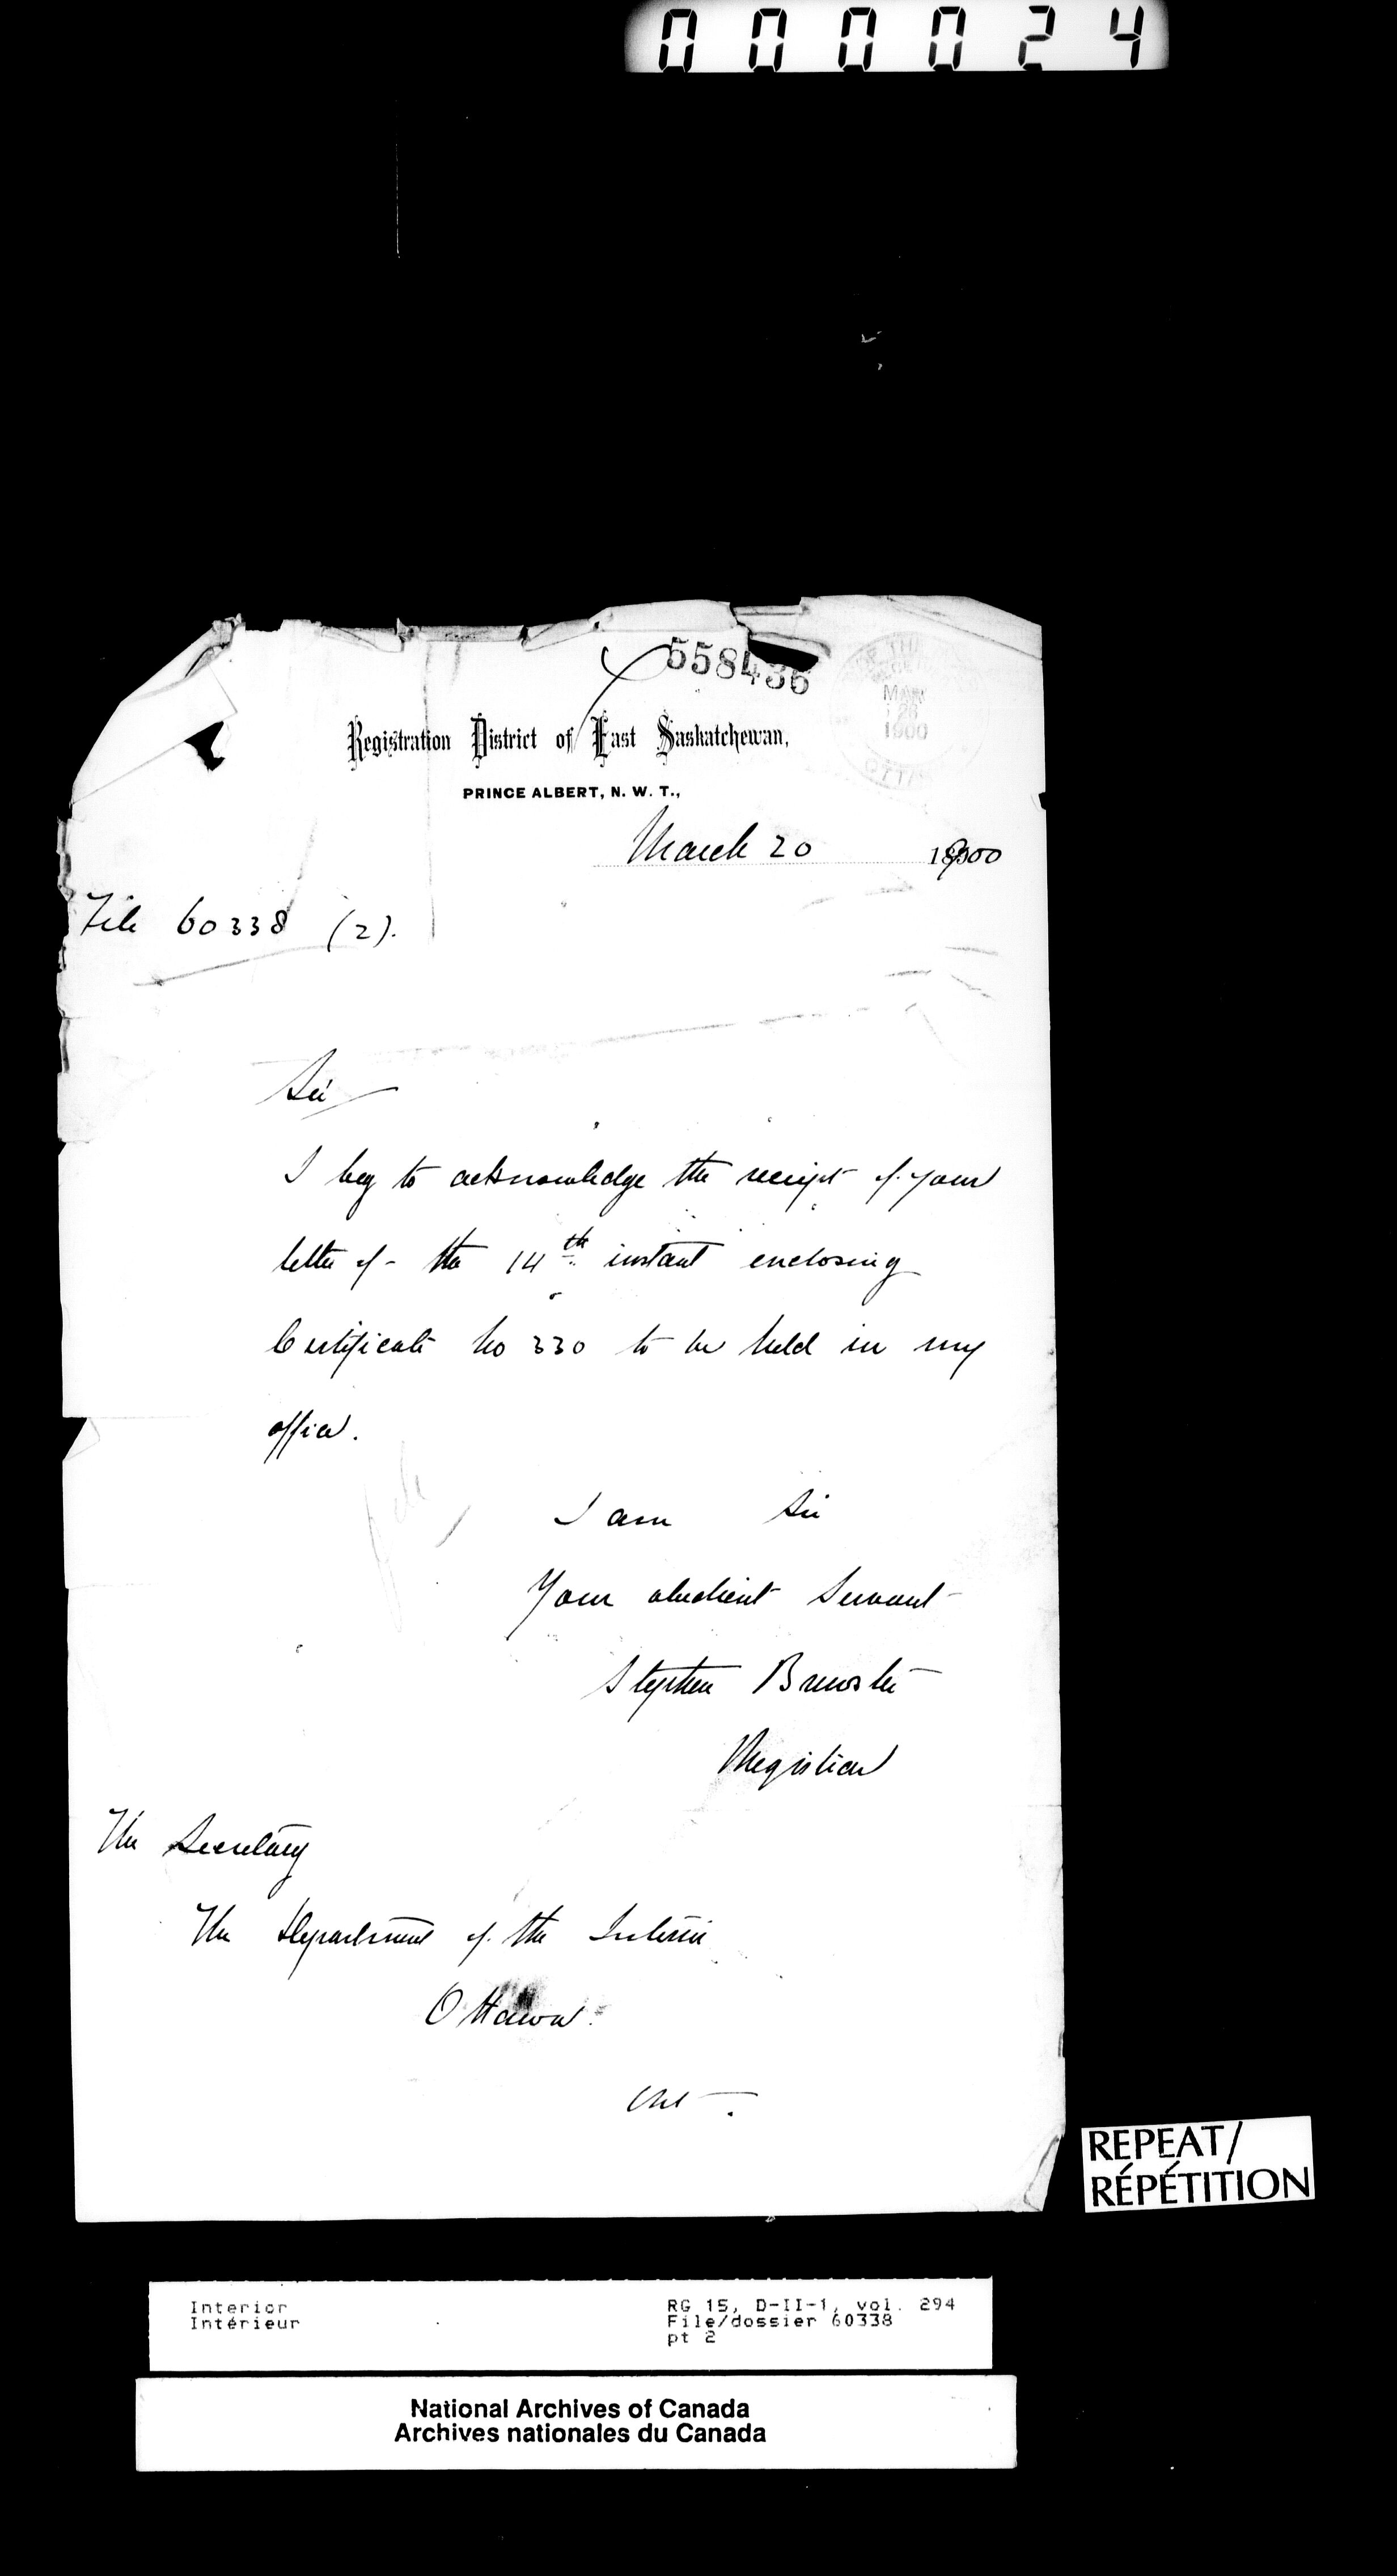 000024
558436
MAR 26 1900
OTTA
Registration District of East Saskatchewan,
PRINCE ALBERT, N. W. T.,
March 20 1900
File 60338 (2).
Sir
I beg to acknowledge the receipt of your
letter of the 14th instant enclosing
Certificate No 330 to be held in my
office.
file
I am Sir
Your obedient Servant
Stephen Brewster
Registrar
The Secretary
The Department of the Interior
Ottawa.
Ont.
REPEAT/
RÉPÉTITION
Interior
Intérieur
RG 15, D-II-1, vol. 294
File/dossier 60338
pt 2
National Archives of Canada
Archives nationales du Canada